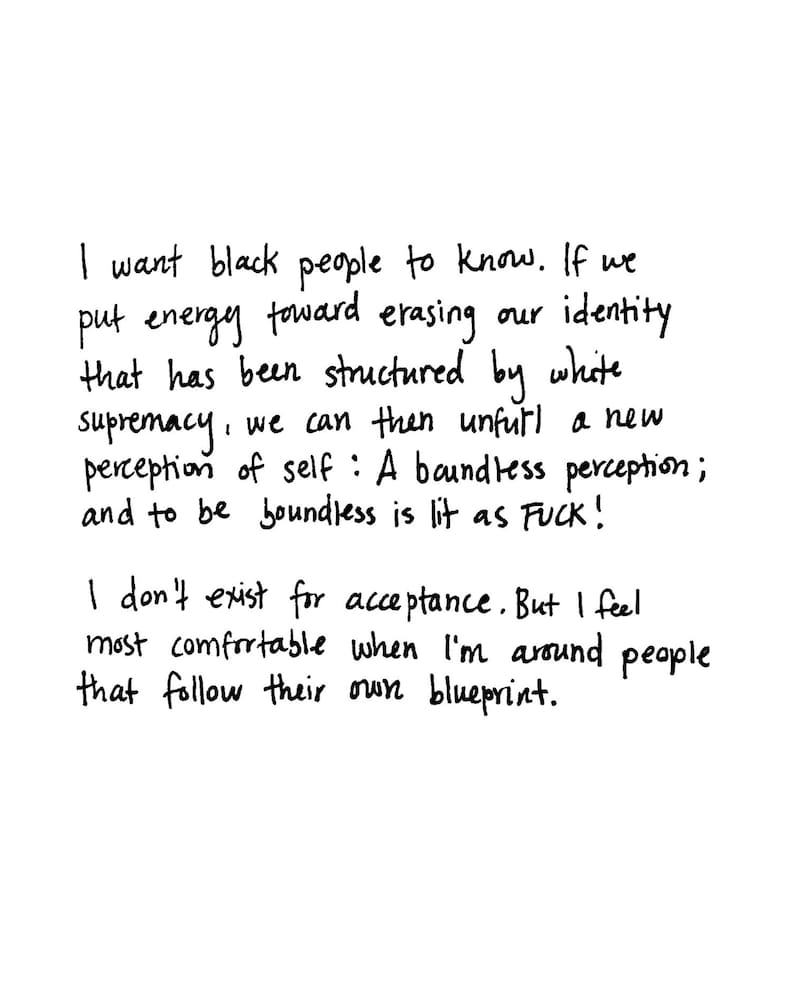 I want black people to know. If we
put energy toward erasing our identity
that has been structured by white
supremacy, we can then unfurl a new
perception of self : A boundless perception;
and to be boundless is lit as FUCK!
I don't exist for acceptance. But I feel
most comfortable when I'm around people
that follow their own blueprint.